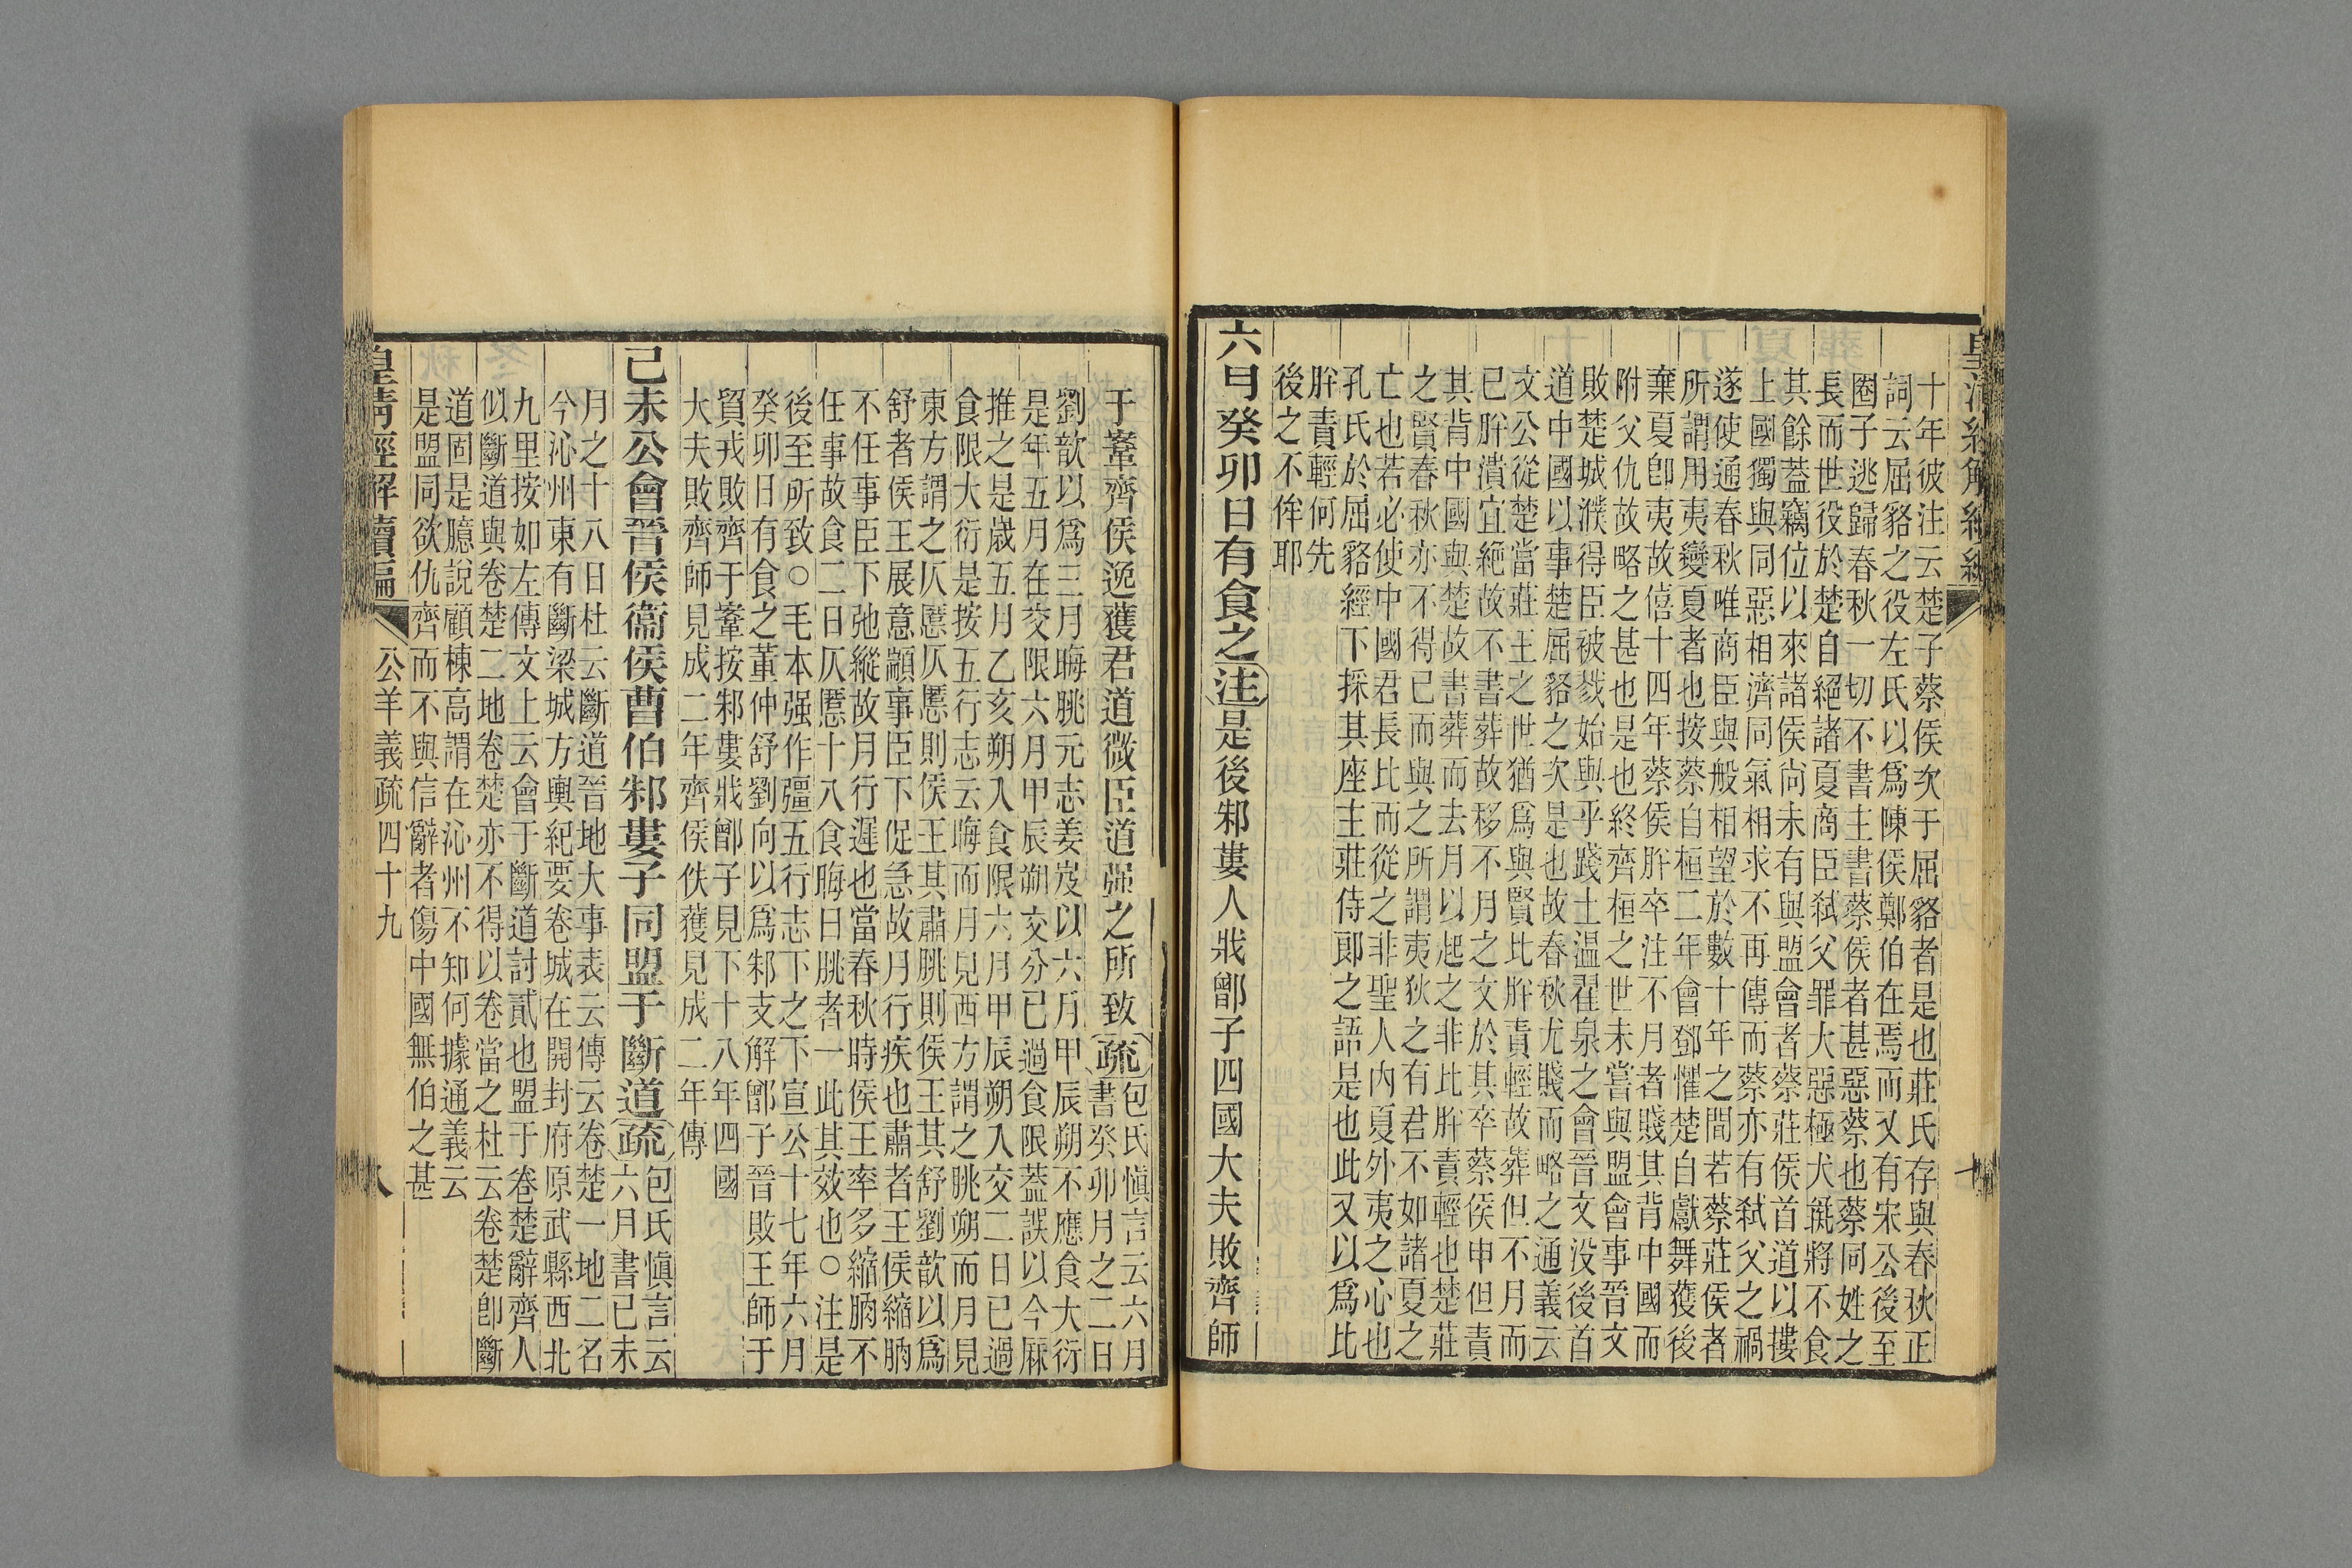 皇清經解續編
十
十年彼注云楚子蔡侯次于屈貉者是也莊氏存與春秋正
詞云屈貉之役左氏以爲陳侯鄭伯在焉而又有宋公後至
圈子逃歸春秋一切不書主書蔡侯者甚惡蔡也蔡同姓之
長而世役於楚自絕諸夏商臣弒父罪大惡極犬彘將不食
其餘蓋竊位以來諸侯尚未有與盟會者蔡莊侯首道以摟
上國獨與同惡相濟同氣相求不再傳而蔡亦有弒父之禍
遂使通春秋唯商臣與般相望於數十年之間若蔡莊侯者
所謂用夷變夏者也按蔡自桓二年會鄧懼楚自獻舞獲後
棄夏卽夷故僖十四年蔡侯肸卒注不月者賤其背中國而
附父仇故略之甚也是也終齊桓之世未嘗與盟會事晉文
敗楚城濮得臣被戮始與乎踐土温翟泉之會晉文没後首
道中國以事楚屈貉之次是也故春秋尤賤而略之通義云
文公從楚當莊王之世猶爲與賢比肸責輕故葬但不月而
已肸潰宜絕故不書葬故移不月之文於其卒蔡侯申但責
其背中國與楚故書葬而去月以起之非比肸責輕也楚莊
之賢春秋亦不得已而與之所謂夷狄之有君不如諸夏之
亡也若必使中國君長比而從之非聖人內夏外夷之心也
孔氏於屈貉經下採其座主莊侍郎之語是也此又以爲比
肸責輕何先
後之不侔耶
六月癸卯日有食之注是後邾婁人戕鄫子四國大夫敗齊師
于鞌齊侯逸獲君道微臣道强之所致疏包氏愼言云六月
書癸卯月之二日
劉歆以爲三月晦朓元志姜岌以六月甲辰朔不應食大衍
是年五月在交限六月甲辰朔交分已過食限蓋誤以今厤
推之是歲五月乙亥朔入食限六月甲辰朔入交二日已過
食限大衍是按五行志云晦而月見西方謂之朓朔而月見
東方謂之仄慝仄慝則侯王其肅朓則侯王其舒劉歆以爲
舒者侯王展意顓事臣下促急故月行疾也肅者王侯縮朒
不任事臣下弛縱故月行遲也當春秋時侯王率多縮朒不
任事故食二日仄慝十八食晦日朓者一此其效也○注是
後至所致○毛本强作彊五行志下之下宣公十七年六月
癸卯日有食之董仲舒劉向以爲邾支解鄫子晉敗王師于
貿戎敗齊于鞌按邾婁戕鄫子見下十八年四國
大夫敗齊師見成二年齊侯佚獲見成二年傳
己未公會晉侯衞侯曹伯邾婁子同盟于斷道疏包氏愼言云
六月書己未
月之十八日杜云斷道晉地大事表云傳云卷楚一地二名
今沁州東有斷梁城方輿紀要卷城在開封府原武縣西北
九里按如左傳文上云會于斷道討貳也盟于卷楚辭齊人
似斷道與卷楚二地卷楚亦不得以卷當之杜云卷楚卽斷
道固是臆說顧棟高謂在沁州不知何據通義云
是盟同欲仇齊而不與信辭者傷中國無伯之甚
皇清經解續編
公羊義疏四十九
八